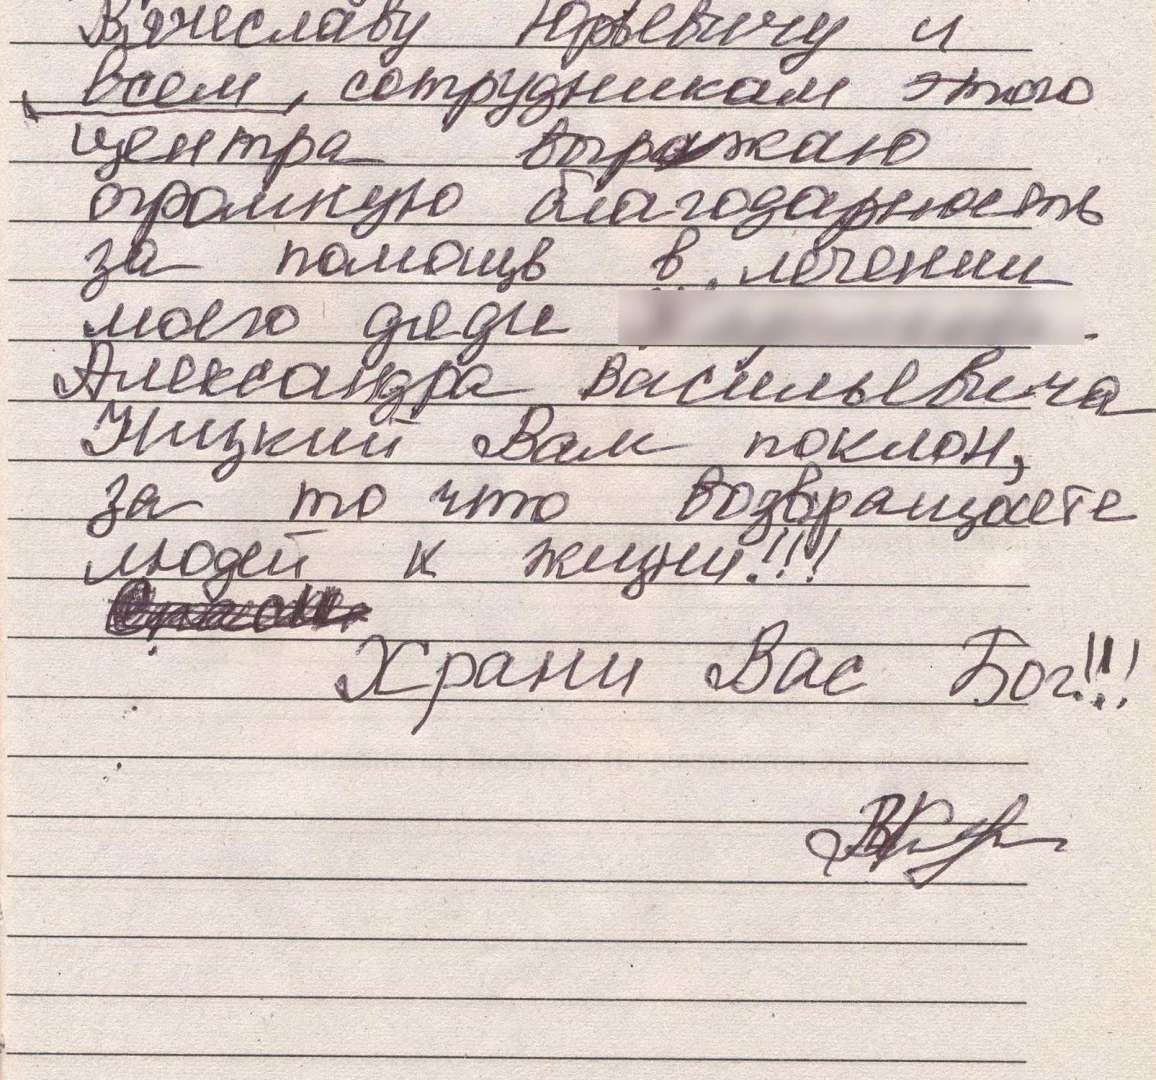 Вячеславу Юрьевичу и
всем, сотрудникам этого
центра выражаю
огромную благодарность
за помощь в лечении
моего дяди
Александра Васильевича
Низкий Вам поклон,
за то что возвращаете
людей к жизни!!!
Храни Вас Бог!!!